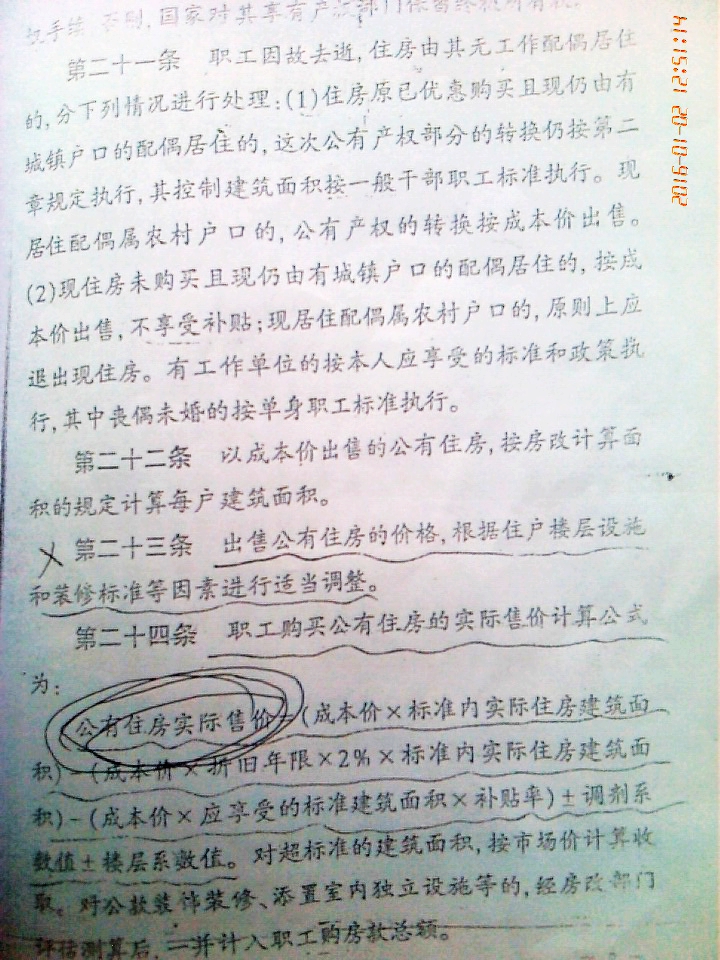 权手续，否则，国家对其享有产权部门保留终极所有权。
第二十一条 职工因故去逝，住房由其无工作配偶居住
的，分下列情况进行处理：(1)住房原已优惠购买且现仍由有
城镇户口的配偶居住的，这次公有产权部分的转换仍按第二
章规定执行，其控制建筑面积按一般干部职工标准执行。现
居住配偶属农村户口的，公有产权的转换按成本价出售。
(2)现住房未购买且现仍由有城镇户口的配偶居住的，按成
本价出售，不享受补贴；现居住配偶属农村户口的，原则上应
退出现住房。有工作单位的按本人应享受的标准和政策执
行，其中丧偶未婚的按单身职工标准执行。
第二十二条 以成本价出售的公有住房，按房改计算面
积的规定计算每户建筑面积。
第二十三条 出售公有住房的价格，根据住户楼层设施
和装修标准等因素进行适当调整。
第二十四条 职工购买公有住房的实际售价计算公式
为：
公有住房实际售价=(成本价×标准内实际住房建筑面
积)-(成本价×折旧年限×2%×标准内实际住房建筑面
积)-(成本价×应享受的标准建筑面积×补贴率)±调剂系
数值±楼层系数值。对超标准的建筑面积，按市场价计算收
取。对公款装饰装修、添置室内独立设施等的，经房改部门
评估测算后，一并计入职工购房款总额。
2016-01-02 12:51:14